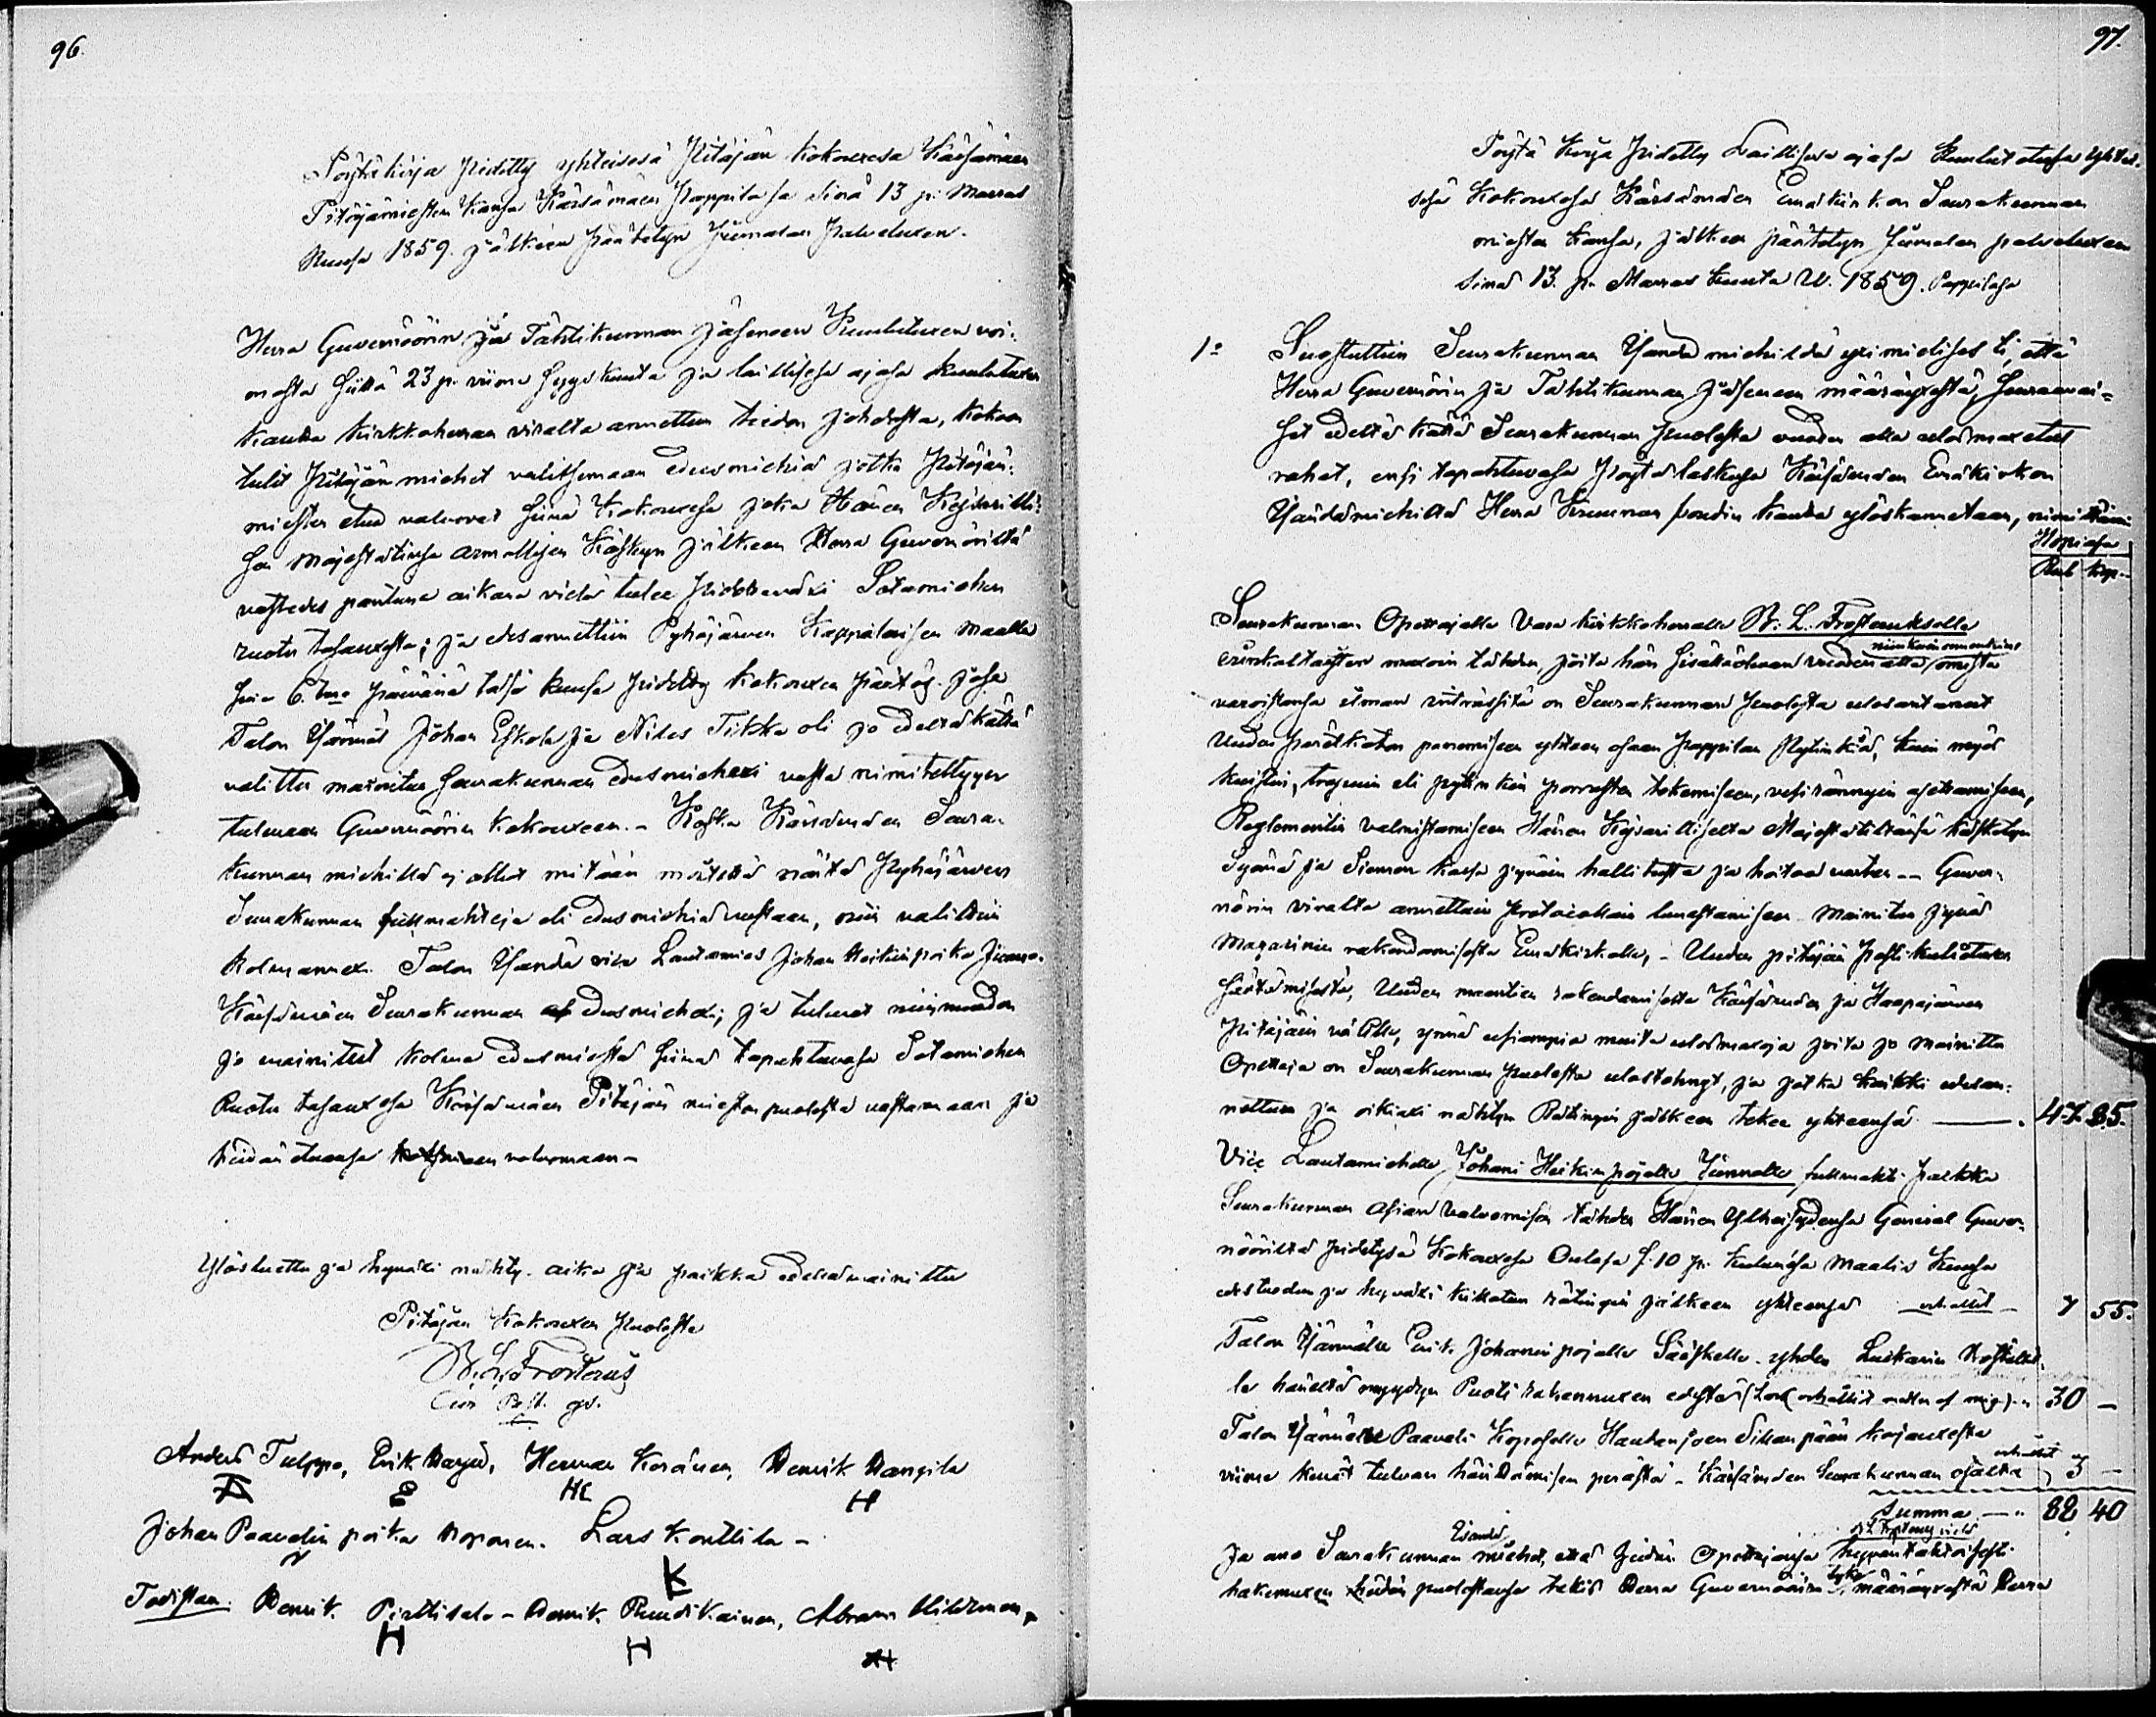 96.
Pöytäkirja pidetty yhteisesä Pitäjän kokouxesa Kärsämäen
Pitäjämiesten kansa Kärsämäen Pappilasa sinä 13 p. Marras
Kuusa 1859. jälkeen päätetyn Jumalan palveluxen.
Herra Guvernöörin ja Tähtikunnan jäsenen Kuulutuxen voi-
masta siittä 23 p. viime Syyskuuta ja laillisesa ajasa kuulutuxen
kautta kirkkoherran viralta annettun tiedon johdosta, kokoon
tulit Pitäjän miehet valitsemaan Edusmiehiä jotka Pitäjän-
miesten etua valvovat siinä Kokouxesa joka Hänen Kejsarilli-
sen Majestätinsä armollisen Käskyn jälkeen Herra Guvernöriltä
vastedes pantuna aikana vielä tulee pidettäväxi Sotamiehen
ruotu tasauxesta; ja edesannettiin Pyhäjärven Kappelaisen Maalla
sinä 6.tna päivänä tässä kuusa pidetty kokouxen päätös. josa
Talon Isännät Johan Eskola ja Niles Tikka oli jo edeltäkättä
valittu mainitun seurakunnan edusmiehexi vasta nimitettyyn
tulevaan Guvernöörin kokouxeen. - Koska Kärsämäen Seura-
kunnan miehillä ej ollut mitään näitä Pyhäjärven
Seurakunnan fullmahteja eli edusmiehiä vastaan, niin valittiin
kolmannexi Talon Isändä vice Lautamies Johan Heikinpoika Junno.
Kärsämäen Seurakunnan edusmiehexi; ja tulevat niinmuodon
jo mainitut kolme edusmiestä siinä tapahtuvasa Sotamiehen
Ruotu tasauxesa Kärsämäen Pitäjän miesten puolesta vastaamaan ja
heidän etuansa valvomaan -
Ylösluettu ja hyväxi nähty. aika ja paikka edellämainittu
Pitäjän Kokouxen puolesta
N. L. Frosterus
Anders Tulppo, Erik Harju, Herman Koränen, Henrik Hangila
A E HK H
Johan Paavalin poika Koponen. Lars Konttila -
K
Todistaa. Henrik Piettilalo - Henrik Ruudikainen, Abram Hildman,
H H AH
97.
Pöytä Kirja Pidetty Laillisesa ajasa kuulutetusa yhtei-
sesä Kokouxesa Kärsämäen Emäkirkon Seurakunnan
miesten kansa, jälkeen päätetyn Jumalan palveluxen
sinä 13. p. Marras kuuta V. 1859. Pappilasa
1o Suostuttiin Seurakunnan Isända miehildä yximielisesti, että
Herra Guvernörin ja Tähtikunnan Jäsenen määräyxestä, seuraavai-
set edeltä kättä Seurakunnan puolesta vuoden alla ulosmaxetut
rahat, ensi tapahtuvasa Pöytä laskusa Kärsämäen Emäkirkon
Isändämiehillä Herra Kruunun voudin kautta ylöskannetaan, nimittäin
Hopiasa
Rub Kop
Seurakunnan Opettajalle Vara kirkkoherralle N. L. Frosteruxelle
erinkaltaisten maxoin tähden, joita hän sisällä olevan vuoden alla omista
varoistansa ilman viiwyttä on Seurakunnan puolesta ulosantanut
Uuden pärekaton panemiseen yhteen osaan Pappilan Pytinkiä, kuin myös
kuistin, trapuin eli pytinkin porrasten tekemiseen, vesirännyin asettamiseen,
Reglementin valmistamiseen Hänen Kejsarilliselta Majestätiltänsä käsketyn
Syömä ja Siemen kassa jyväin hallitusta ja hoitoa varten -- Guver-
nörin viralta annettuin Protocollain lunastamiseen mainitun jyvä
Magasinin rakendamisesta Emäkirkolle, - Uuden pitäjän Posti kulutuxen
säätämisestä, Uuden maantien rakendamisesta Kärsämäen ja Haapajärven
Pitäjäin välille, ynnä usiampia muita ulosmaxoja joita jo mainittu
Opettaja on Seurakunnan puolesta ulostehnyt, ja jotka kaikki edesan-
nettun ja oikiaxi nähtyn Rätingin jälkeen tekee yhteensä — 47. 85.
Vice Lautamiehelle, Johani Heikinpojalle Junnolle fullmahti palkka
Seurakunnan asian valvomisen tähden Hänen Ylhäisydensä General Guver-
nöörildä pidetysä Kokouxesa Oulusa s. 10 p. kuluvasa Maalis Kuusa
edestuodun ja hyväxi tuttatun rätingin jälkeen yhteensä erhållit - 7 55.
Talon Isännälle Erik Johaninpojalle Sääskelle yhden Luckarin
le häneltä myydyn Puoti rakennuxen edestä 30 —
Talon Isännälle Paavali Koposelle Hautanjoen Sillan pään korjauxesta
viime kevät tulvan hävittämisen perästä - Kärsämäen Seurakunnan osalta erhållit 3 —
Summa — 88 40
Ja ano Seurakunnan Eisändä miehet, että heidän Opettajansa hyväntahtoisesti
hakemuxen heidän puolestansa tekis Herra Guvernöörin tykö, määräyxestä Herra